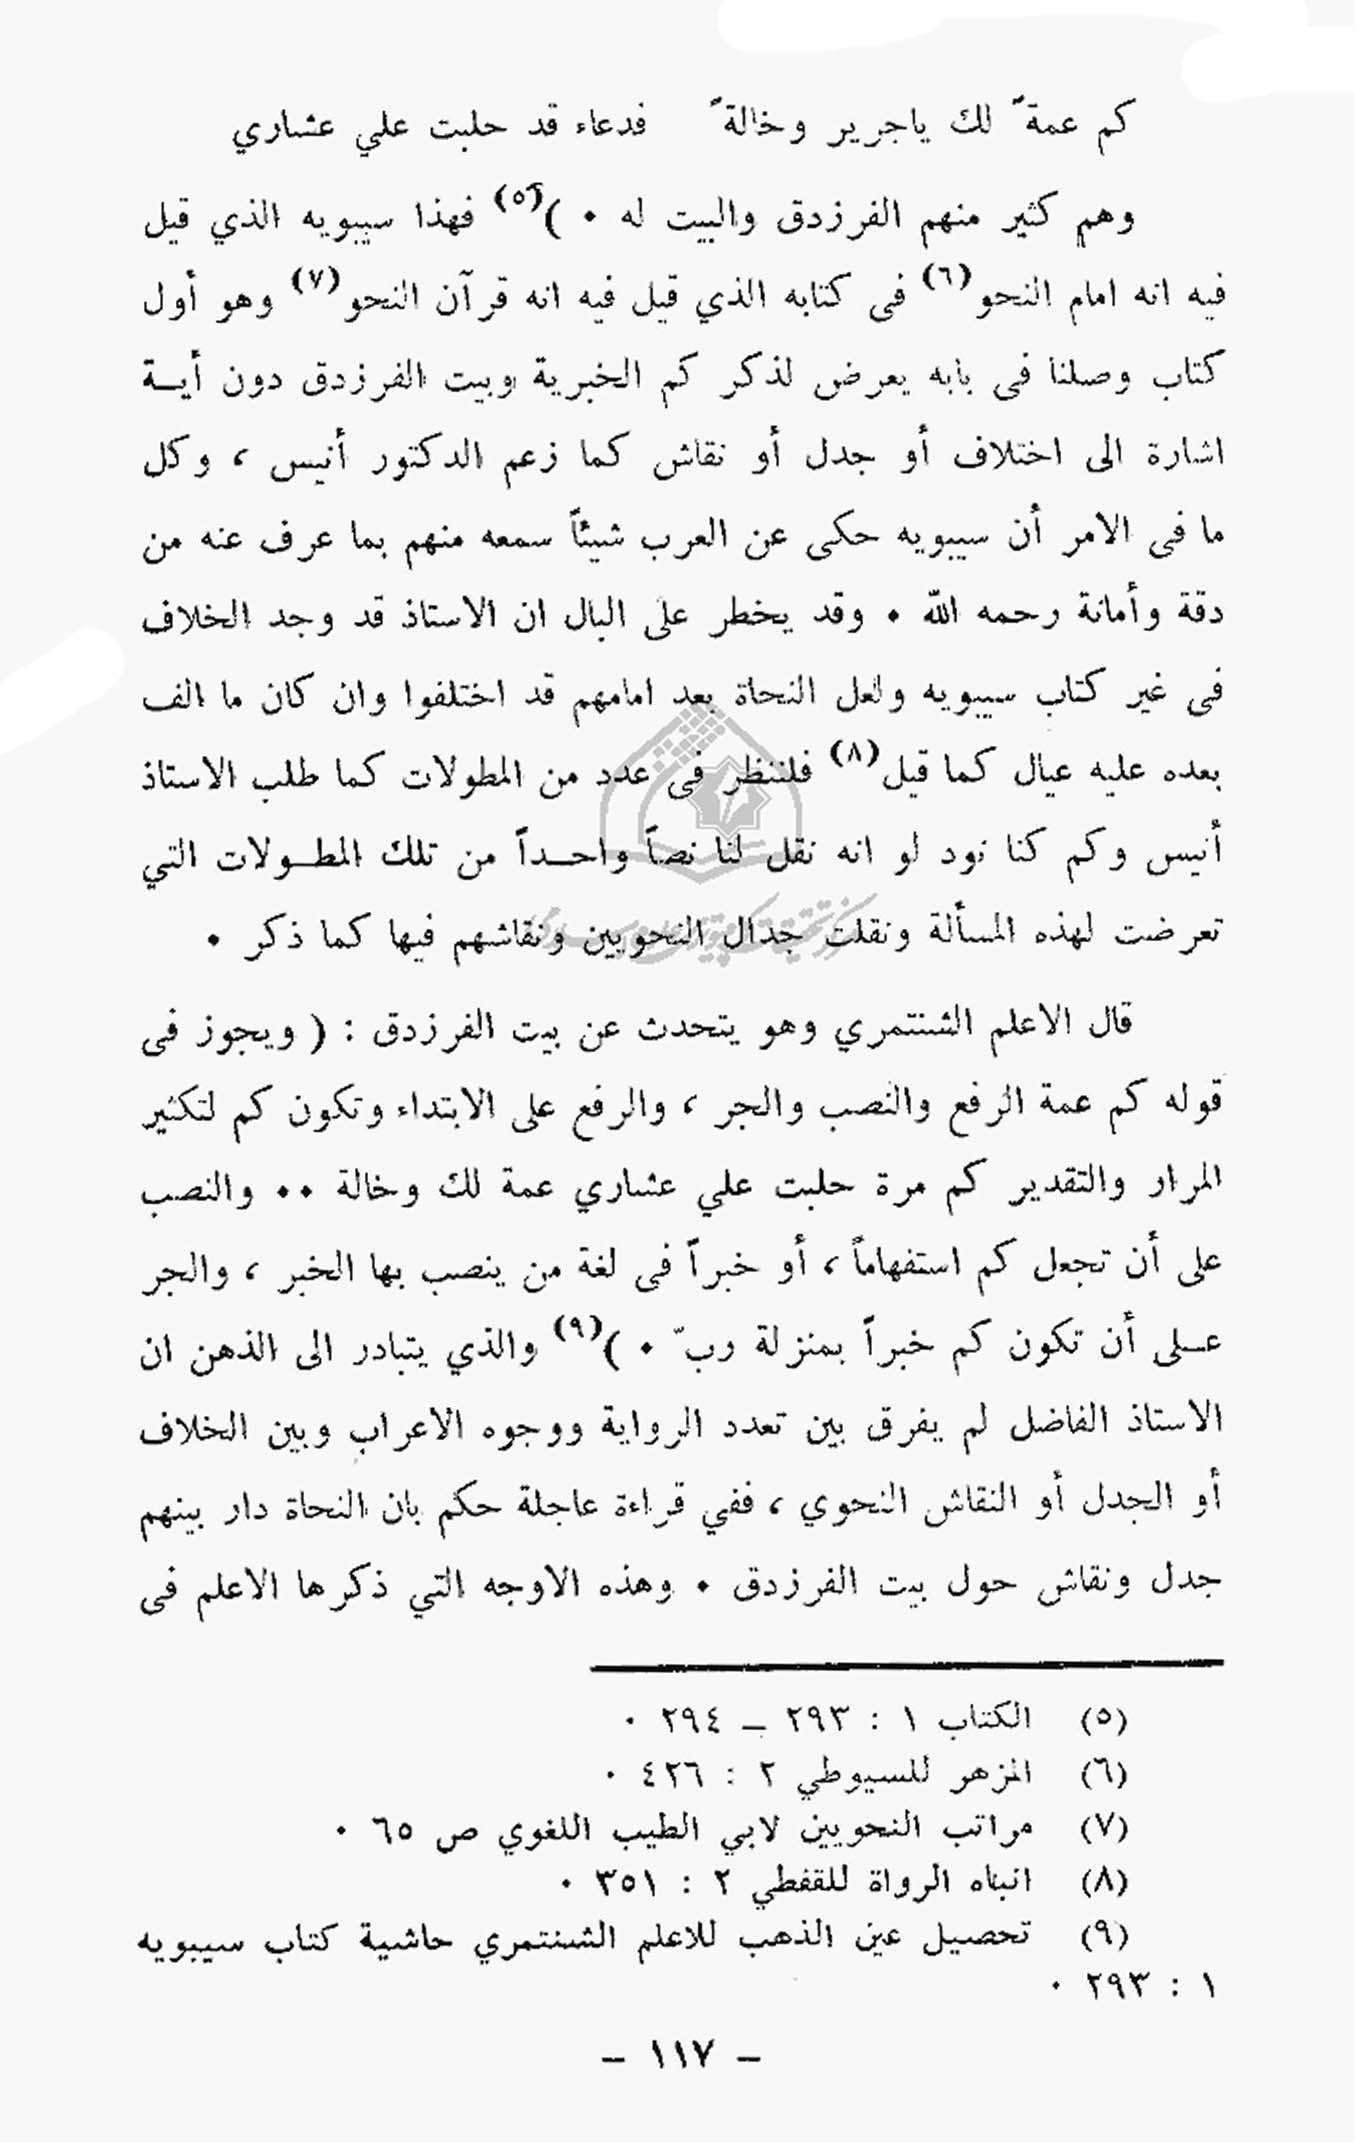 كم عمةً لك ياجرير وخالةً فدعاء قد حلبت علي عشاري
وهم كثير منهم الفرزدق والبيت له ٠ )(٥) فهذا سيبويه الذي قيل
فيه انه امام النحو(٦) فى كتابه الذي قيل فيه انه قرآن النحو(٧) وهو أول
كتاب وصلنا فى بابه يعرض لذكر كم الخبرية وبيت الفرزدق دون أيــة
اشارة الى اختلاف أو جدل أو نقاش كما زعم الدكتور أنيس ، وكل
ما فى الامر أن سيبويه حكى عن العرب شيئاً سمعه منهم بما عرف عنه من
دقة وأمانة رحمه الله ٠ وقد يخطر على البال ان الاستاذ قد وجد الخلاف
فى غير كتاب سيبويه ولعل النحاة بعد امامهم قد اختلفوا وان كان ما الف
بعده عليه عيال كما قيل(٨) فلننظر فى عدد من المطولات كما طلب الاستاذ
أنيس وكم كنا نود لو انه نقل لنا نصاً واحــداً من تلك المطــولات التي
تعرضت لهذه المسألة ونقلت جدال النحويين ونقاشهم فيها كما ذكر ٠
قال الاعلم الشنتمري وهو يتحدث عن بيت الفرزدق : ( ويجوز فى
قوله كم عمة الرفع والنصب والجر ، والرفع على الابتداء وتكون كم لتكثير
المرار والتقدير كم مرة حلبت علي عشاري عمة لك وخالة ٠٠ والنصب
على أن تجعل كم استفهاماً ، أو خبراً فى لغة من ينصب بها الخبر ، والجر
عــلى أن تكون كم خبراً بمنزلة ربّ ٠ )(٩) والذي يتبادر الى الذهن ان
الاستاذ الفاضل لم يفرق بين تعدد الرواية ووجوه الاعراب وبين الخلاف
أو الجدل أو النقاش النحوي ، ففي قراءة عاجلة حكم بان النحاة دار بينهم
جدل ونقاش حول بيت الفرزدق ٠ وهذه الاوجه التي ذكرها الاعلم فى
(٥) الكتاب ١ : ٢٩٣ – ٢٩٤ ٠
(٦) المزهر للسيوطي ٢ : ٤٢٦ ٠
(٧) مراتب النحويين لابي الطيب اللغوي ص ٦٥ ٠
(٨) انباه الرواة للقفطي ٢ : ٣٥١ ٠
(٩) تحصيل عين الذهب للاعلم الشنتمري حاشية كتاب سيبويه
١ : ٢٩٣ ٠
– ١١٧ –